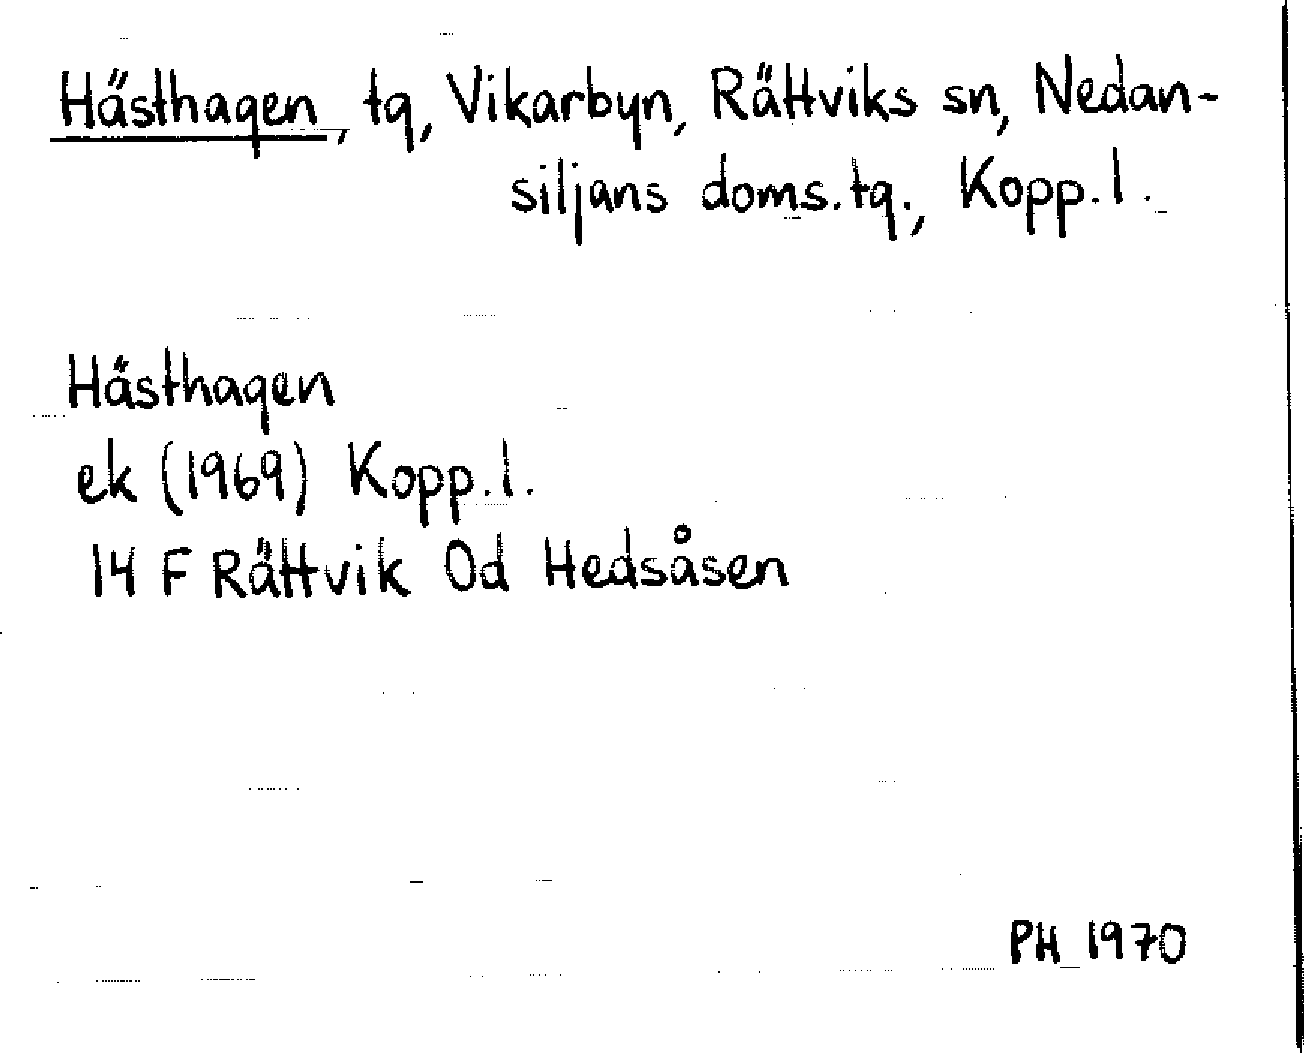 Hästhagen, tg, Vikarbyn, Rättviks sn, Nedan-
siljans doms.tg., Kopp.l.
Hästhagen
ek (1969) Kopp.l.
14 F Rättvik 0d Hedsåsen
PH 1970